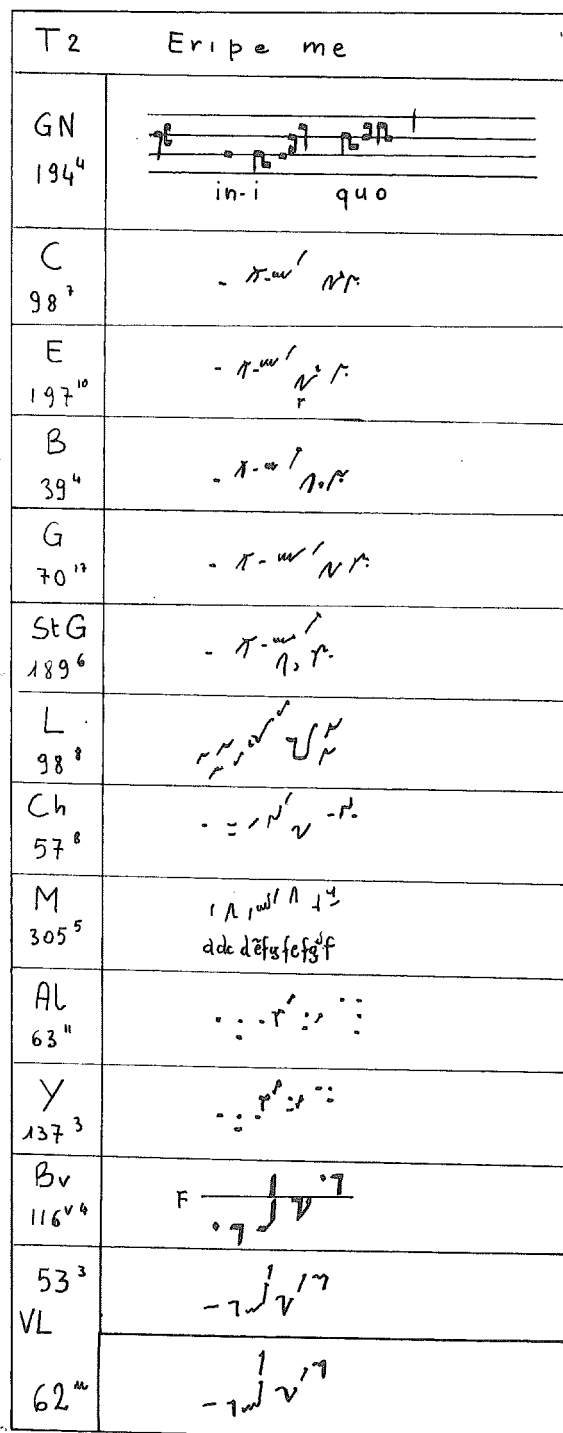 T2 Eripe me
GN
194⁴
in-i quo
C
98⁷
E
197¹⁰
r
B
39⁴
G
70¹⁷
StG
189⁶
L
98⁸
Ch
57⁸
M
305⁵
Al
63¹¹
Y
137³
Bv
116ᵛ⁴
F
53³
VL
62